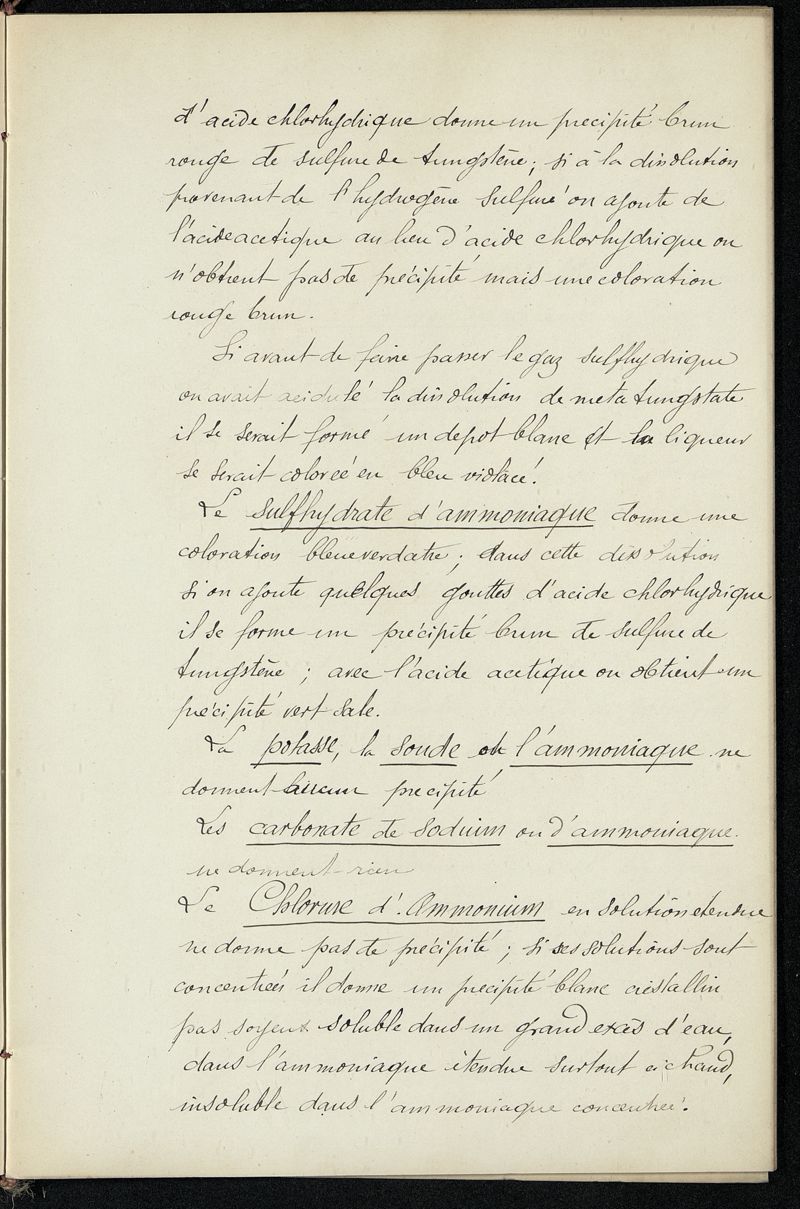 d'acide chlorhydrique donne un precipité brun
rouge de sulfure de tungstène; si à la dissolution
provenant de l'hydrogène sulfuré on ajoute de
l'acide acetique au lieu d'acide chlorhydrique on
n'obtient pas de précipité mais une coloration
rouge brun.
Si avant de faire passer le gaz sulfhydrique
on avait acidulé la dissolution de meta tungstate
il se serait formé un depot blanc et la liqueur
se serait colorée en bleu violacé.
Le sulfhydrate d'ammoniaque donne une
coloration bleue verdatre; dans cette dissolution
si on ajoute quelques gouttes d'acide chlorhydrique
il se forme un précipité brun de sulfure de
tungstène; avec l'acide acetique on obtient un
précipité vert sale.
La potasse, la soude et l'ammoniaque ne
donnent aucun precipité
Les carbonate de sodium ou d'ammoniaque.
ne donnent rien
Le Chlorure d'Ammonium en solution etendue
ne donne pas de précipité; si ses solutions sont
concentrées il donne un precipité blanc cristallin
pas soyeux soluble dans un grand excès d'eau,
dans l'ammoniaque étendue surtout à chaud,
insoluble dans l'ammoniaque concentrée.